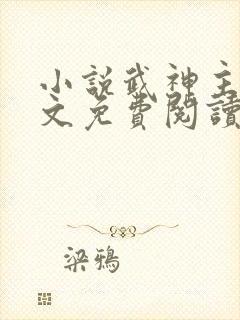 小說武神主
文免費閱讀
梁鴉